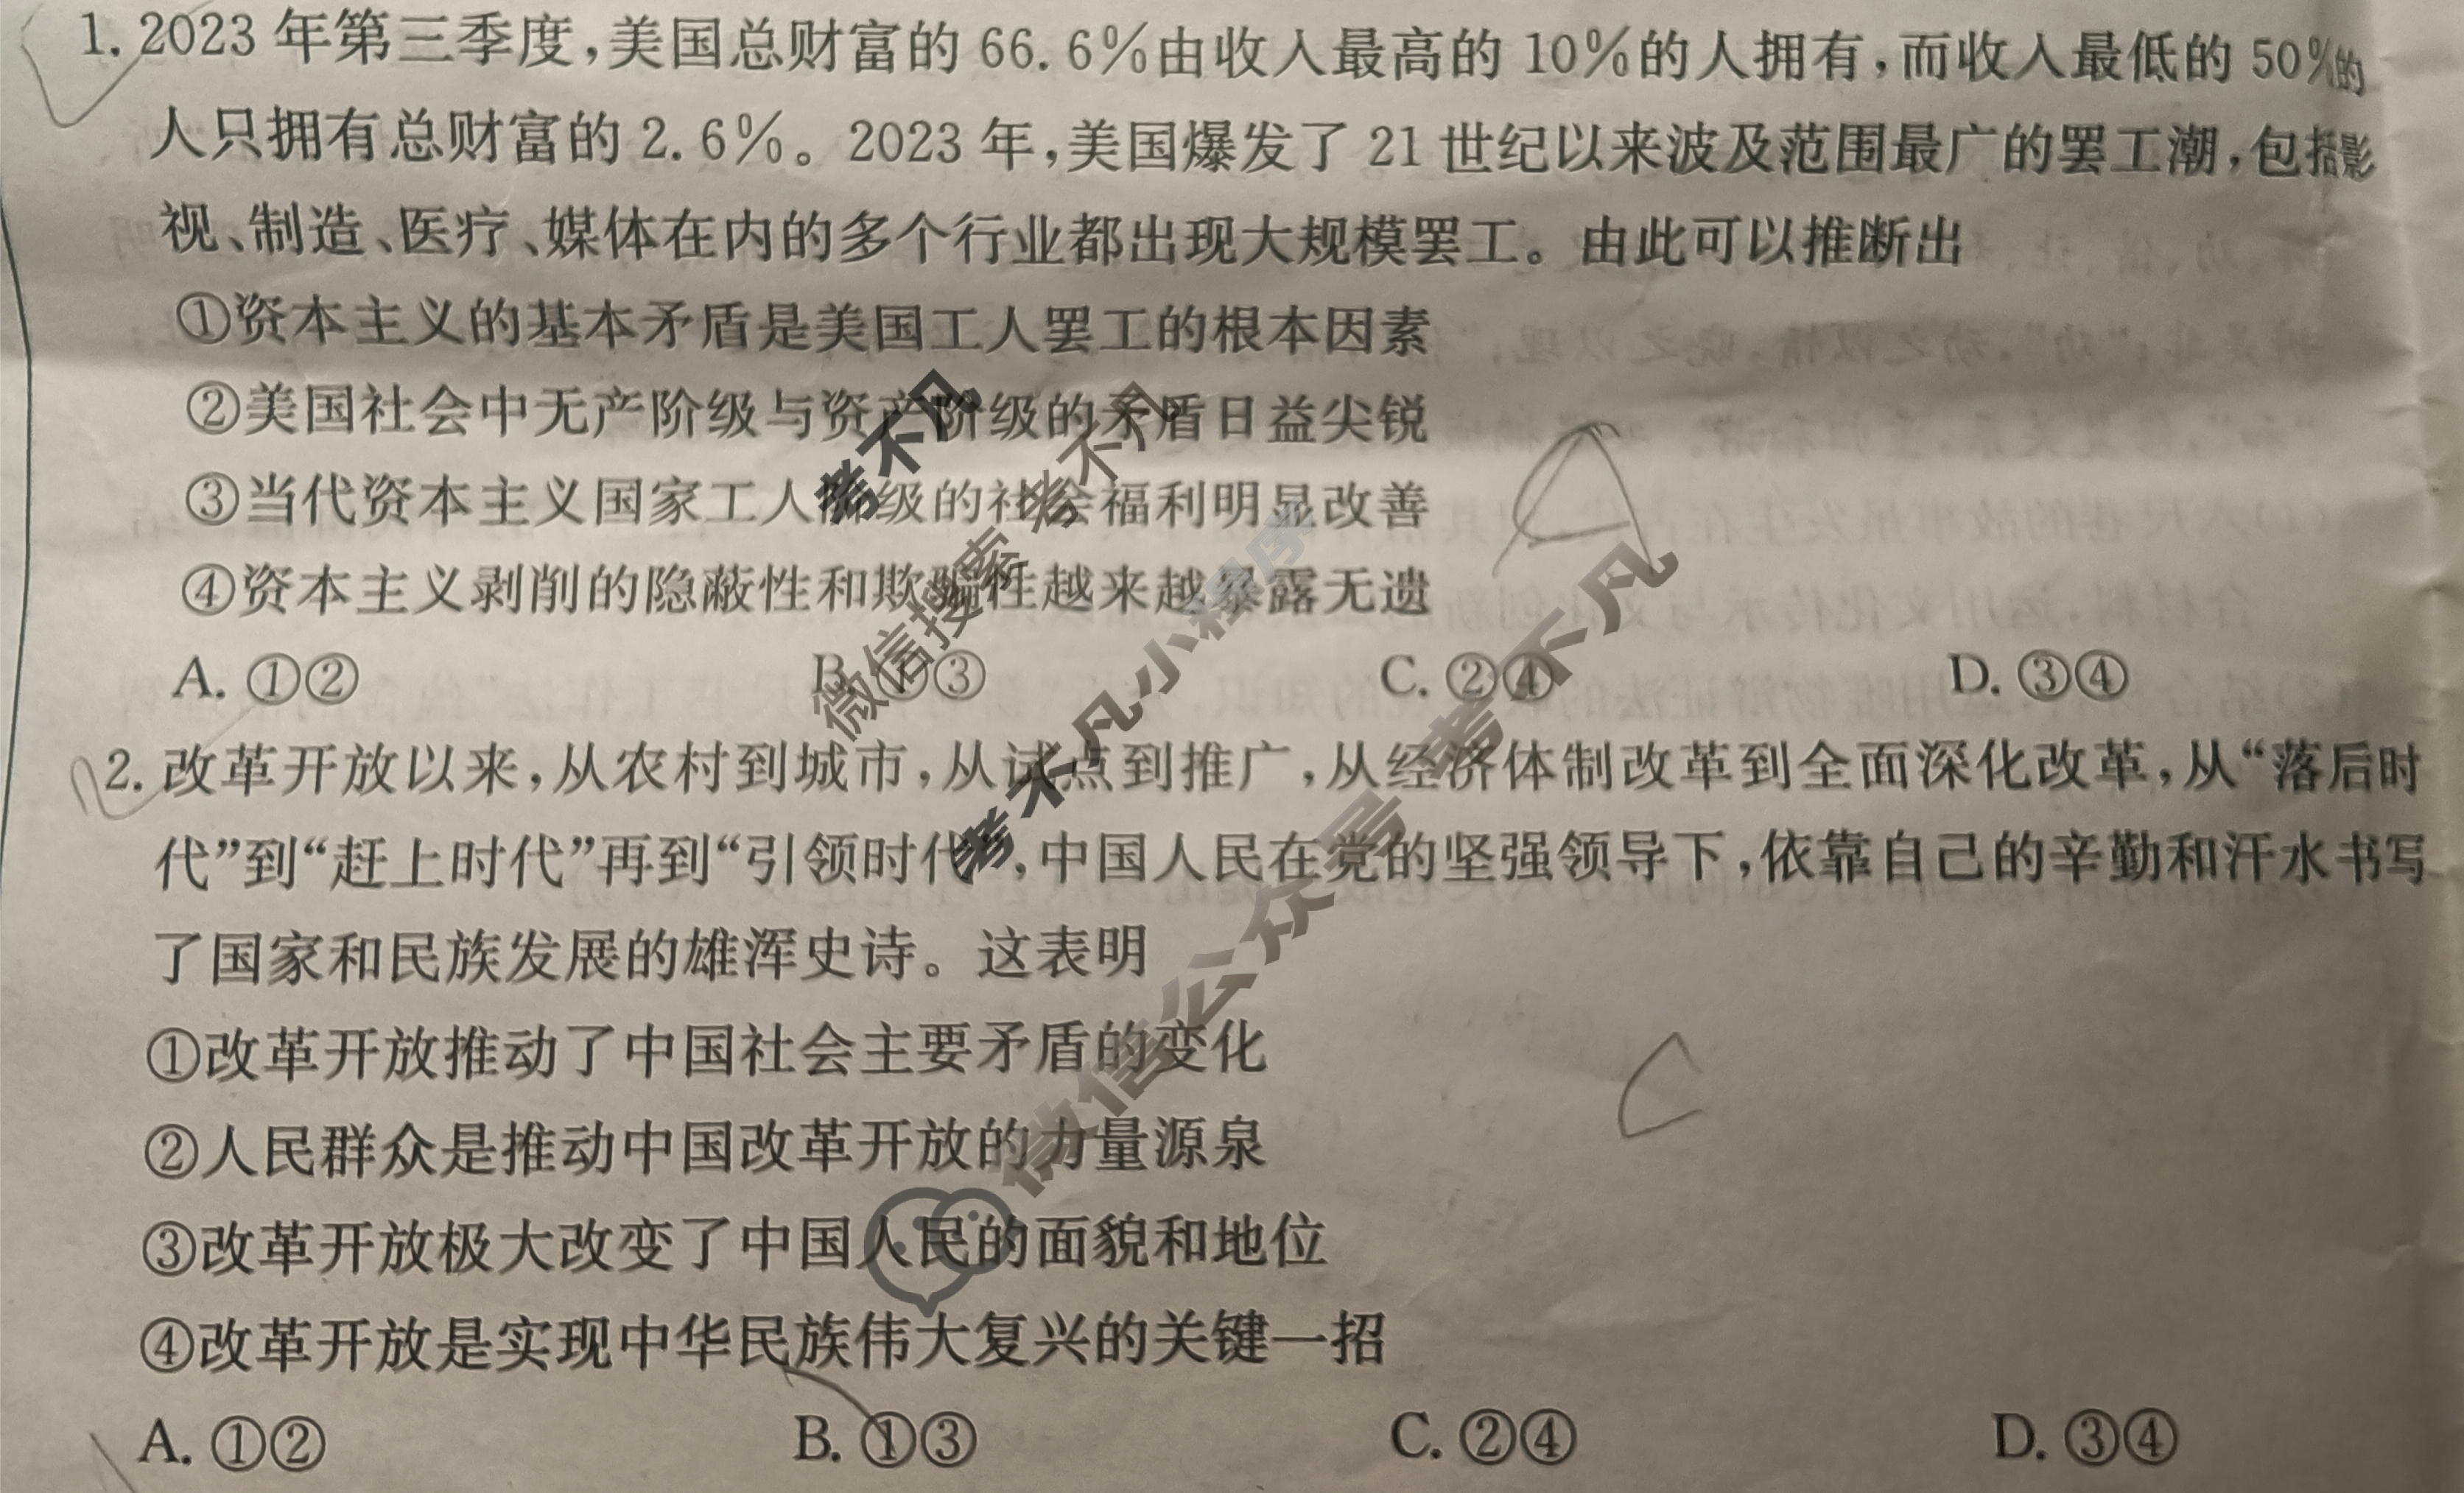 1. 2023 年第三季度,美国总财富的 66.6%由收入最高的 10%的人拥有,而收入最低的 50%的
人只拥有总财富的 2.6%。2023 年,美国爆发了 21 世纪以来波及范围最广的罢工潮,包括影
视、制造、医疗、媒体在内的多个行业都出现大规模罢工。由此可以推断出
①资本主义的基本矛盾是美国工人罢工的根本因素
②美国社会中无产阶级与资产阶级的矛盾日益尖锐
③当代资本主义国家工人阶级的社会福利明显改善
④资本主义剥削的隐蔽性和欺骗性越来越暴露无遗
A
A. ①② B. ①③ C. ②④ D. ③④
2. 改革开放以来,从农村到城市,从试点到推广,从经济体制改革到全面深化改革,从“落后时
代”到“赶上时代”再到“引领时代”,中国人民在党的坚强领导下,依靠自己的辛勤和汗水书写
了国家和民族发展的雄浑史诗。这表明
①改革开放推动了中国社会主要矛盾的变化
②人民群众是推动中国改革开放的力量源泉
C
③改革开放极大改变了中国人民的面貌和地位
④改革开放是实现中华民族伟大复兴的关键一招
A. ①② B. ①③ C. ②④ D. ③④
考不凡
微信搜索 考不凡
考不凡小程序
微信公众号 考不凡